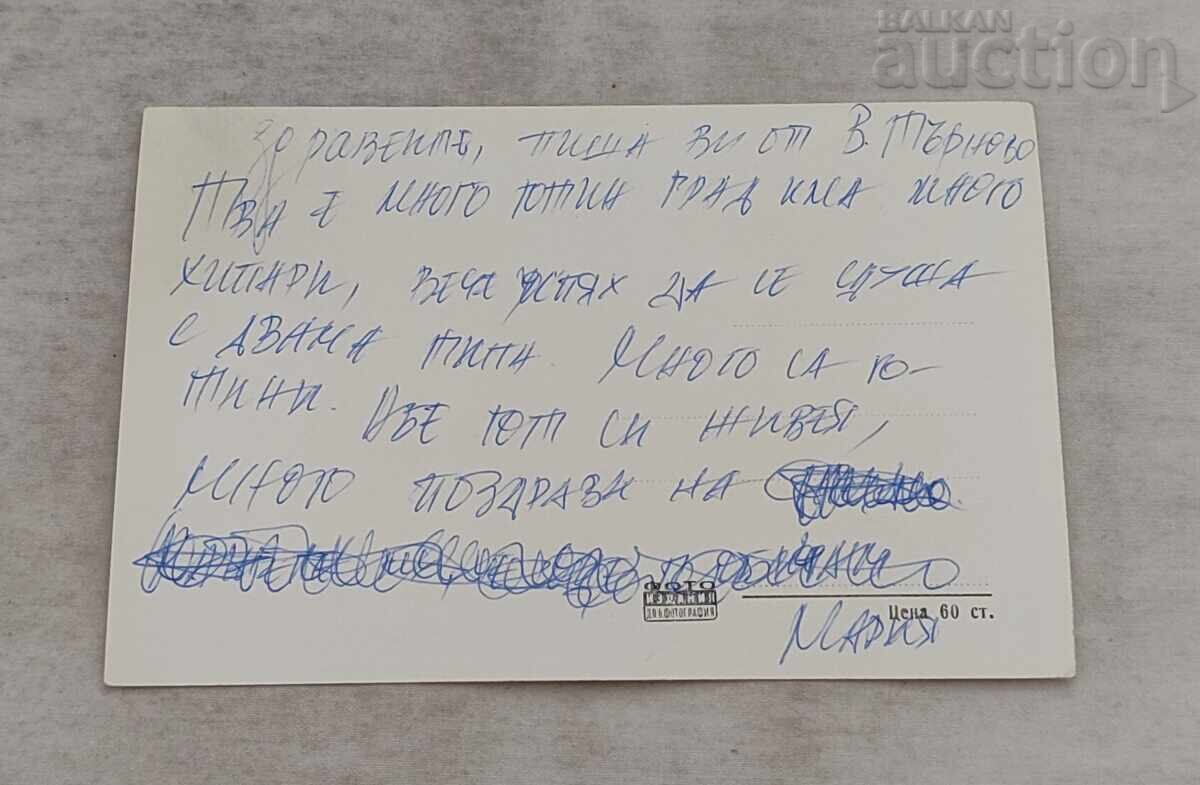 BALKAN
auction
Здравейте, пиша ви от В. Търново
Това е много готин град има много
хипари, вече успях да се
с двама типа. Много са го-
тини. Аве гот си живея,
Много поздрави на
Мария
ФОТО
ИЗДАНИЯ
ДПК ФОТОГРАФИЯ
Цена 60 ст.